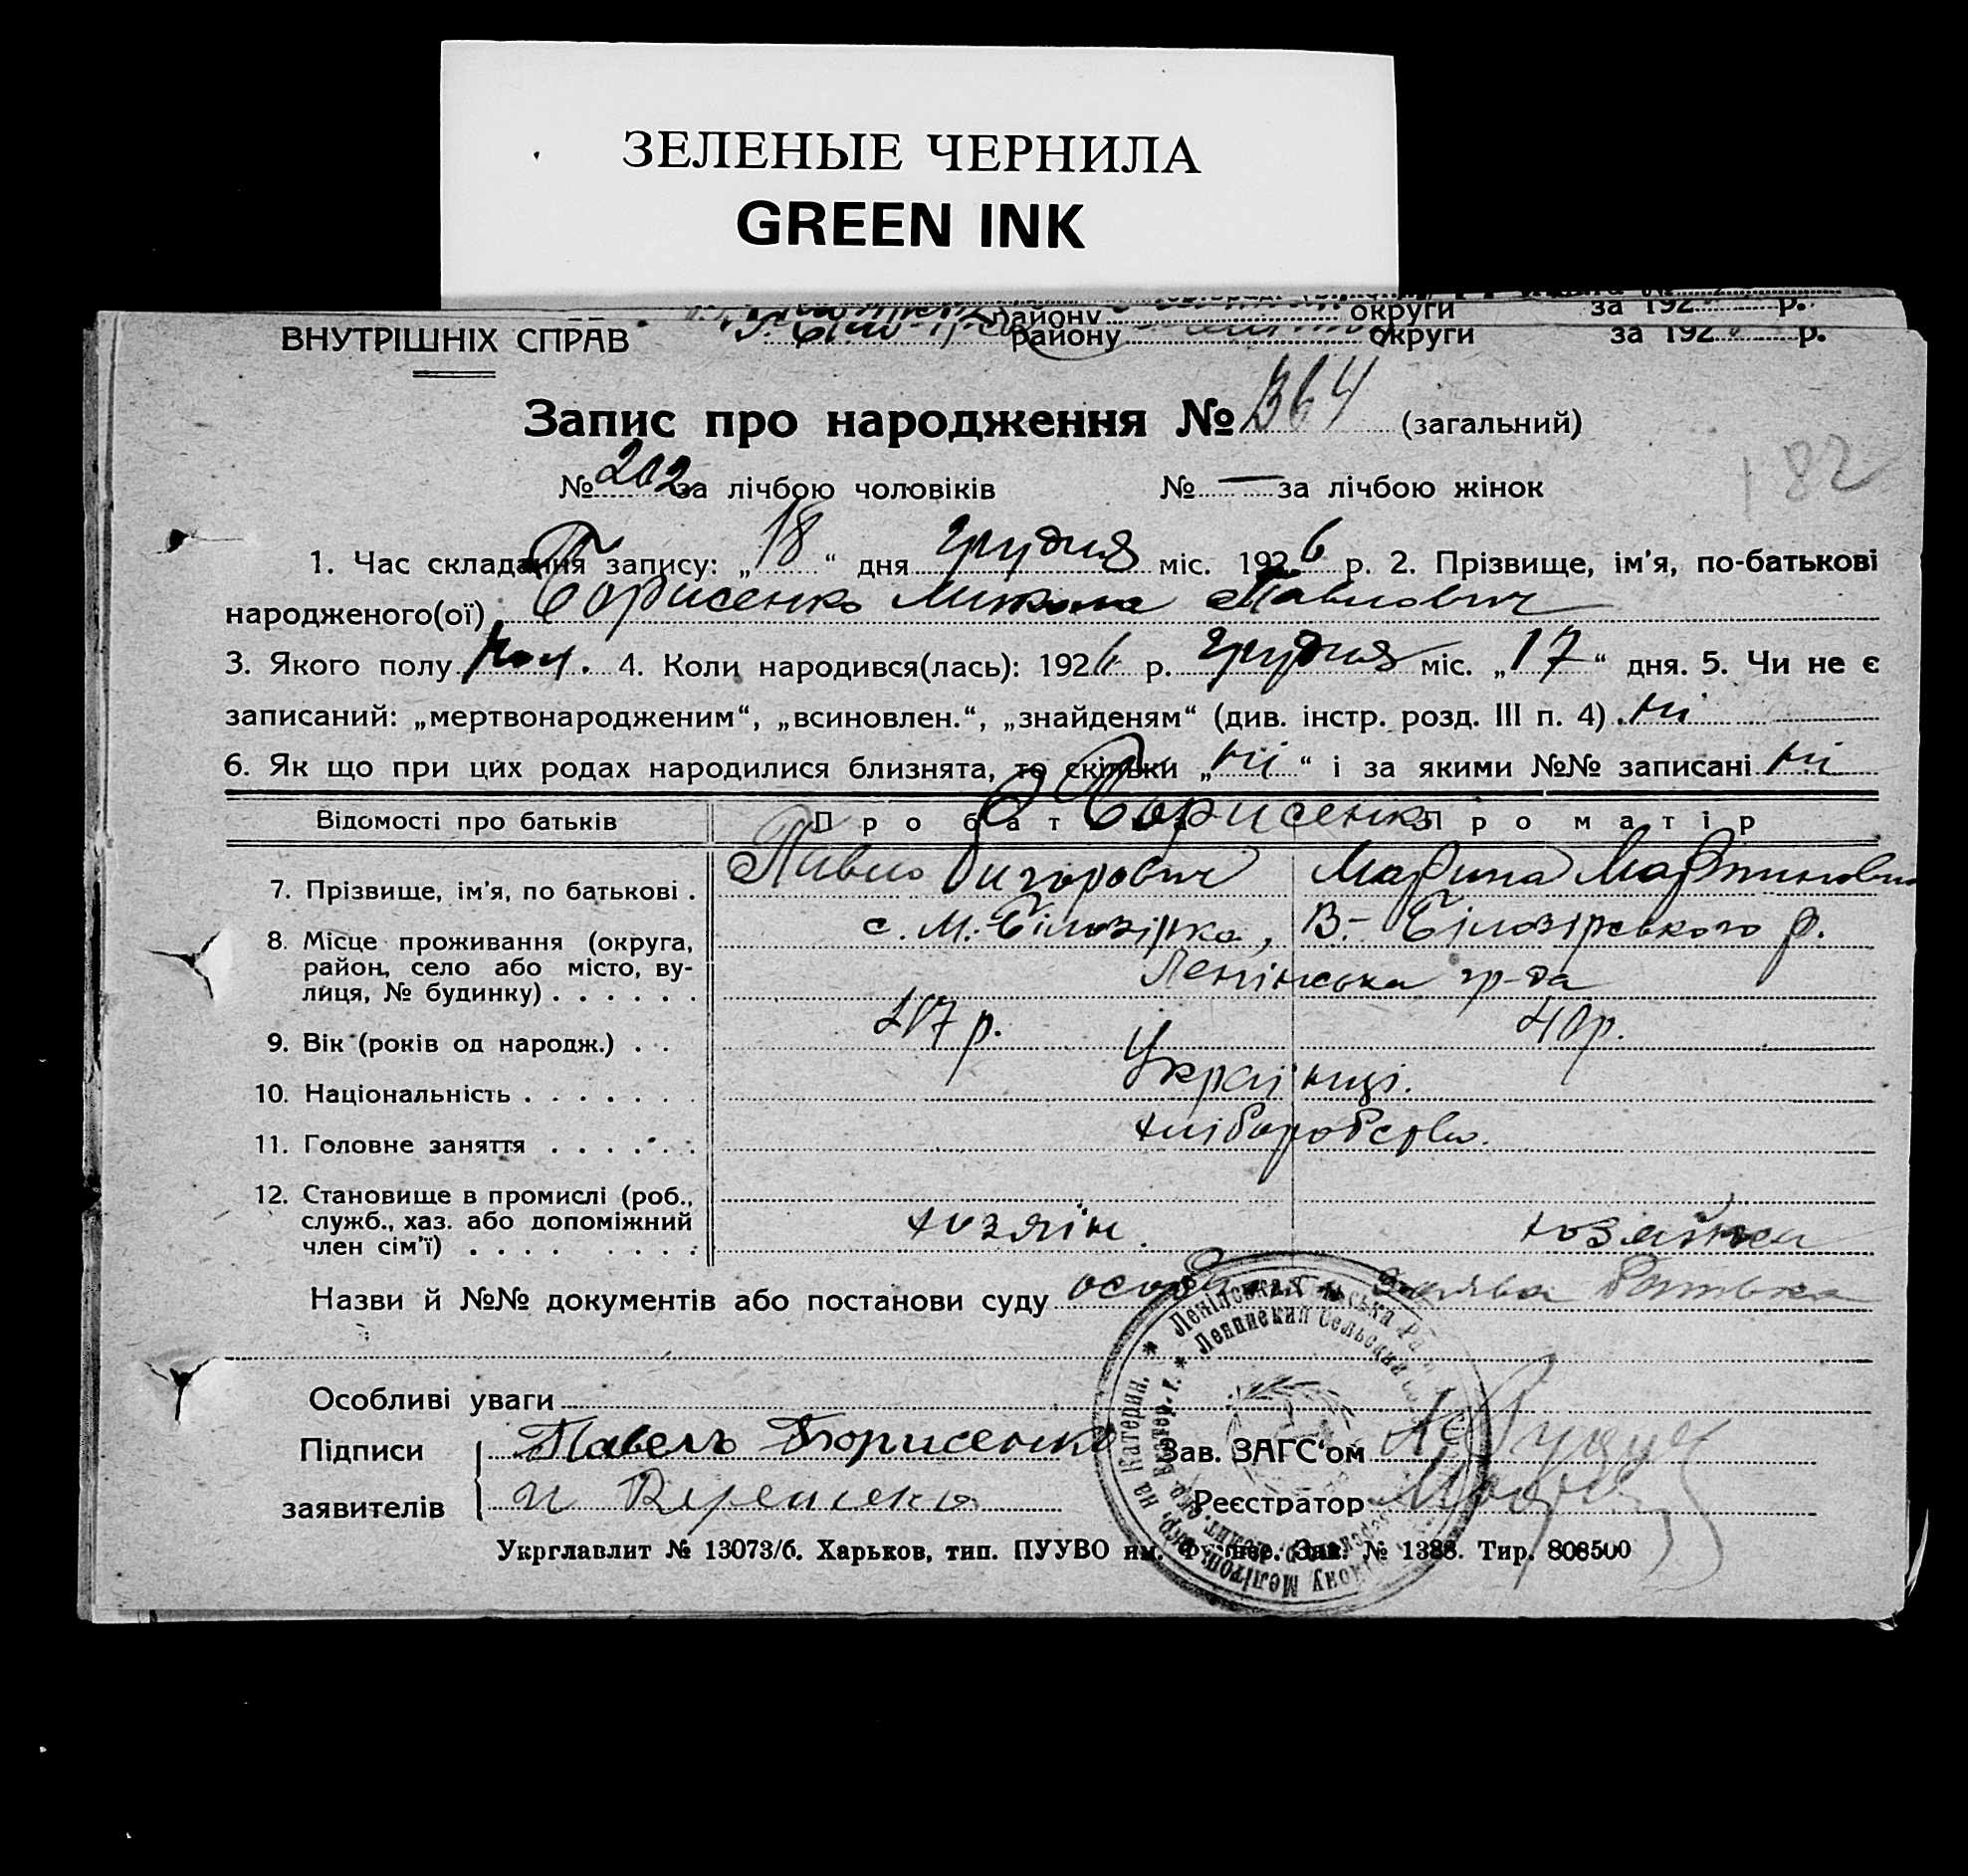 ЗЕЛЕНЫЕ ЧЕРНИЛА
GREEN INK
району округи за 192 р.
ВНУТРІШНІХ СПРАВ району округи за 192 р.
Запис про народження № 364 (загальний)
182
№ 202 за лічбою чоловіків № — за лічбою жінок
1. Час складання запису: „18“ дня грудня міс. 1926 р. 2. Прізвище, ім'я, по-батькові
народженого(ої) Борисенко Микола Павлович
3. Якого полу чол. 4. Коли народився(лась): 1926 р. грудня міс. „17“ дня. 5. Чи не є
записаний: „мертвонародженим“, „всиновлен.“, „знайденям“ (див. інстр. розд. III п. 4) ні
6. Як що при цих родах народилися близнята, то скільки „ні“ і за якими №№ записані ні
Відомості про батьків Про батька Про матір
Борисенко
7. Прізвище, ім'я, по батькові . Павло Григорович Марина Мартиновна
8. Місце проживання (округа, с. М.-Білозірка, В.-Білозірського р.
район, село або місто, ву-
лиця, № будинку) . . . . . . Ленінська гр-да
9. Вік (років од народж.) . . 47 р. 40 р.
10. Національність . . . . . . . Українці.
11. Головне заняття . . . . . . хліборобство.
12. Становище в промислі (роб.,
служб., хаз. або допоміжний
член сім'ї) . . . . . . . . . хозяїн. хозяйка
Назви й №№ документів або постанови суду заява батька
Особливі уваги
Підписи Павелъ Борисенко Зав. ЗАГС'ом
заявителів Реєстратор
Укрглавлит № 13073/б. Харьков, тип. ПУУВО им. Фрунзе. Зак. № 1388. Тир. 808500